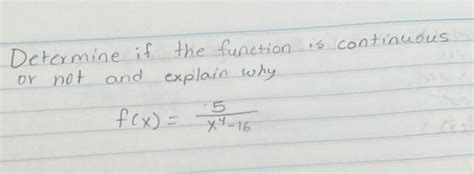 Determine if the function is continuous
or not and explain why
f(x) = 5/(x⁴-16)